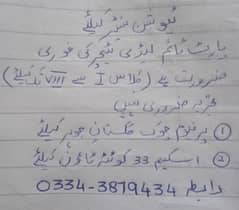 ٹیوشن سنٹر کیلئے
پارٹ ٹائم لیڈی ٹیچر کی فوری
ضرورت ہے (کلاس I سے VIII تک کیلئے)
تجربہ ضروری نہیں
① پرفیوم چوک گلستان جوہر کیلئے
② اسکیم 33 کوئٹہ ٹاؤن کیلئے
رابطہ 0334-3879434